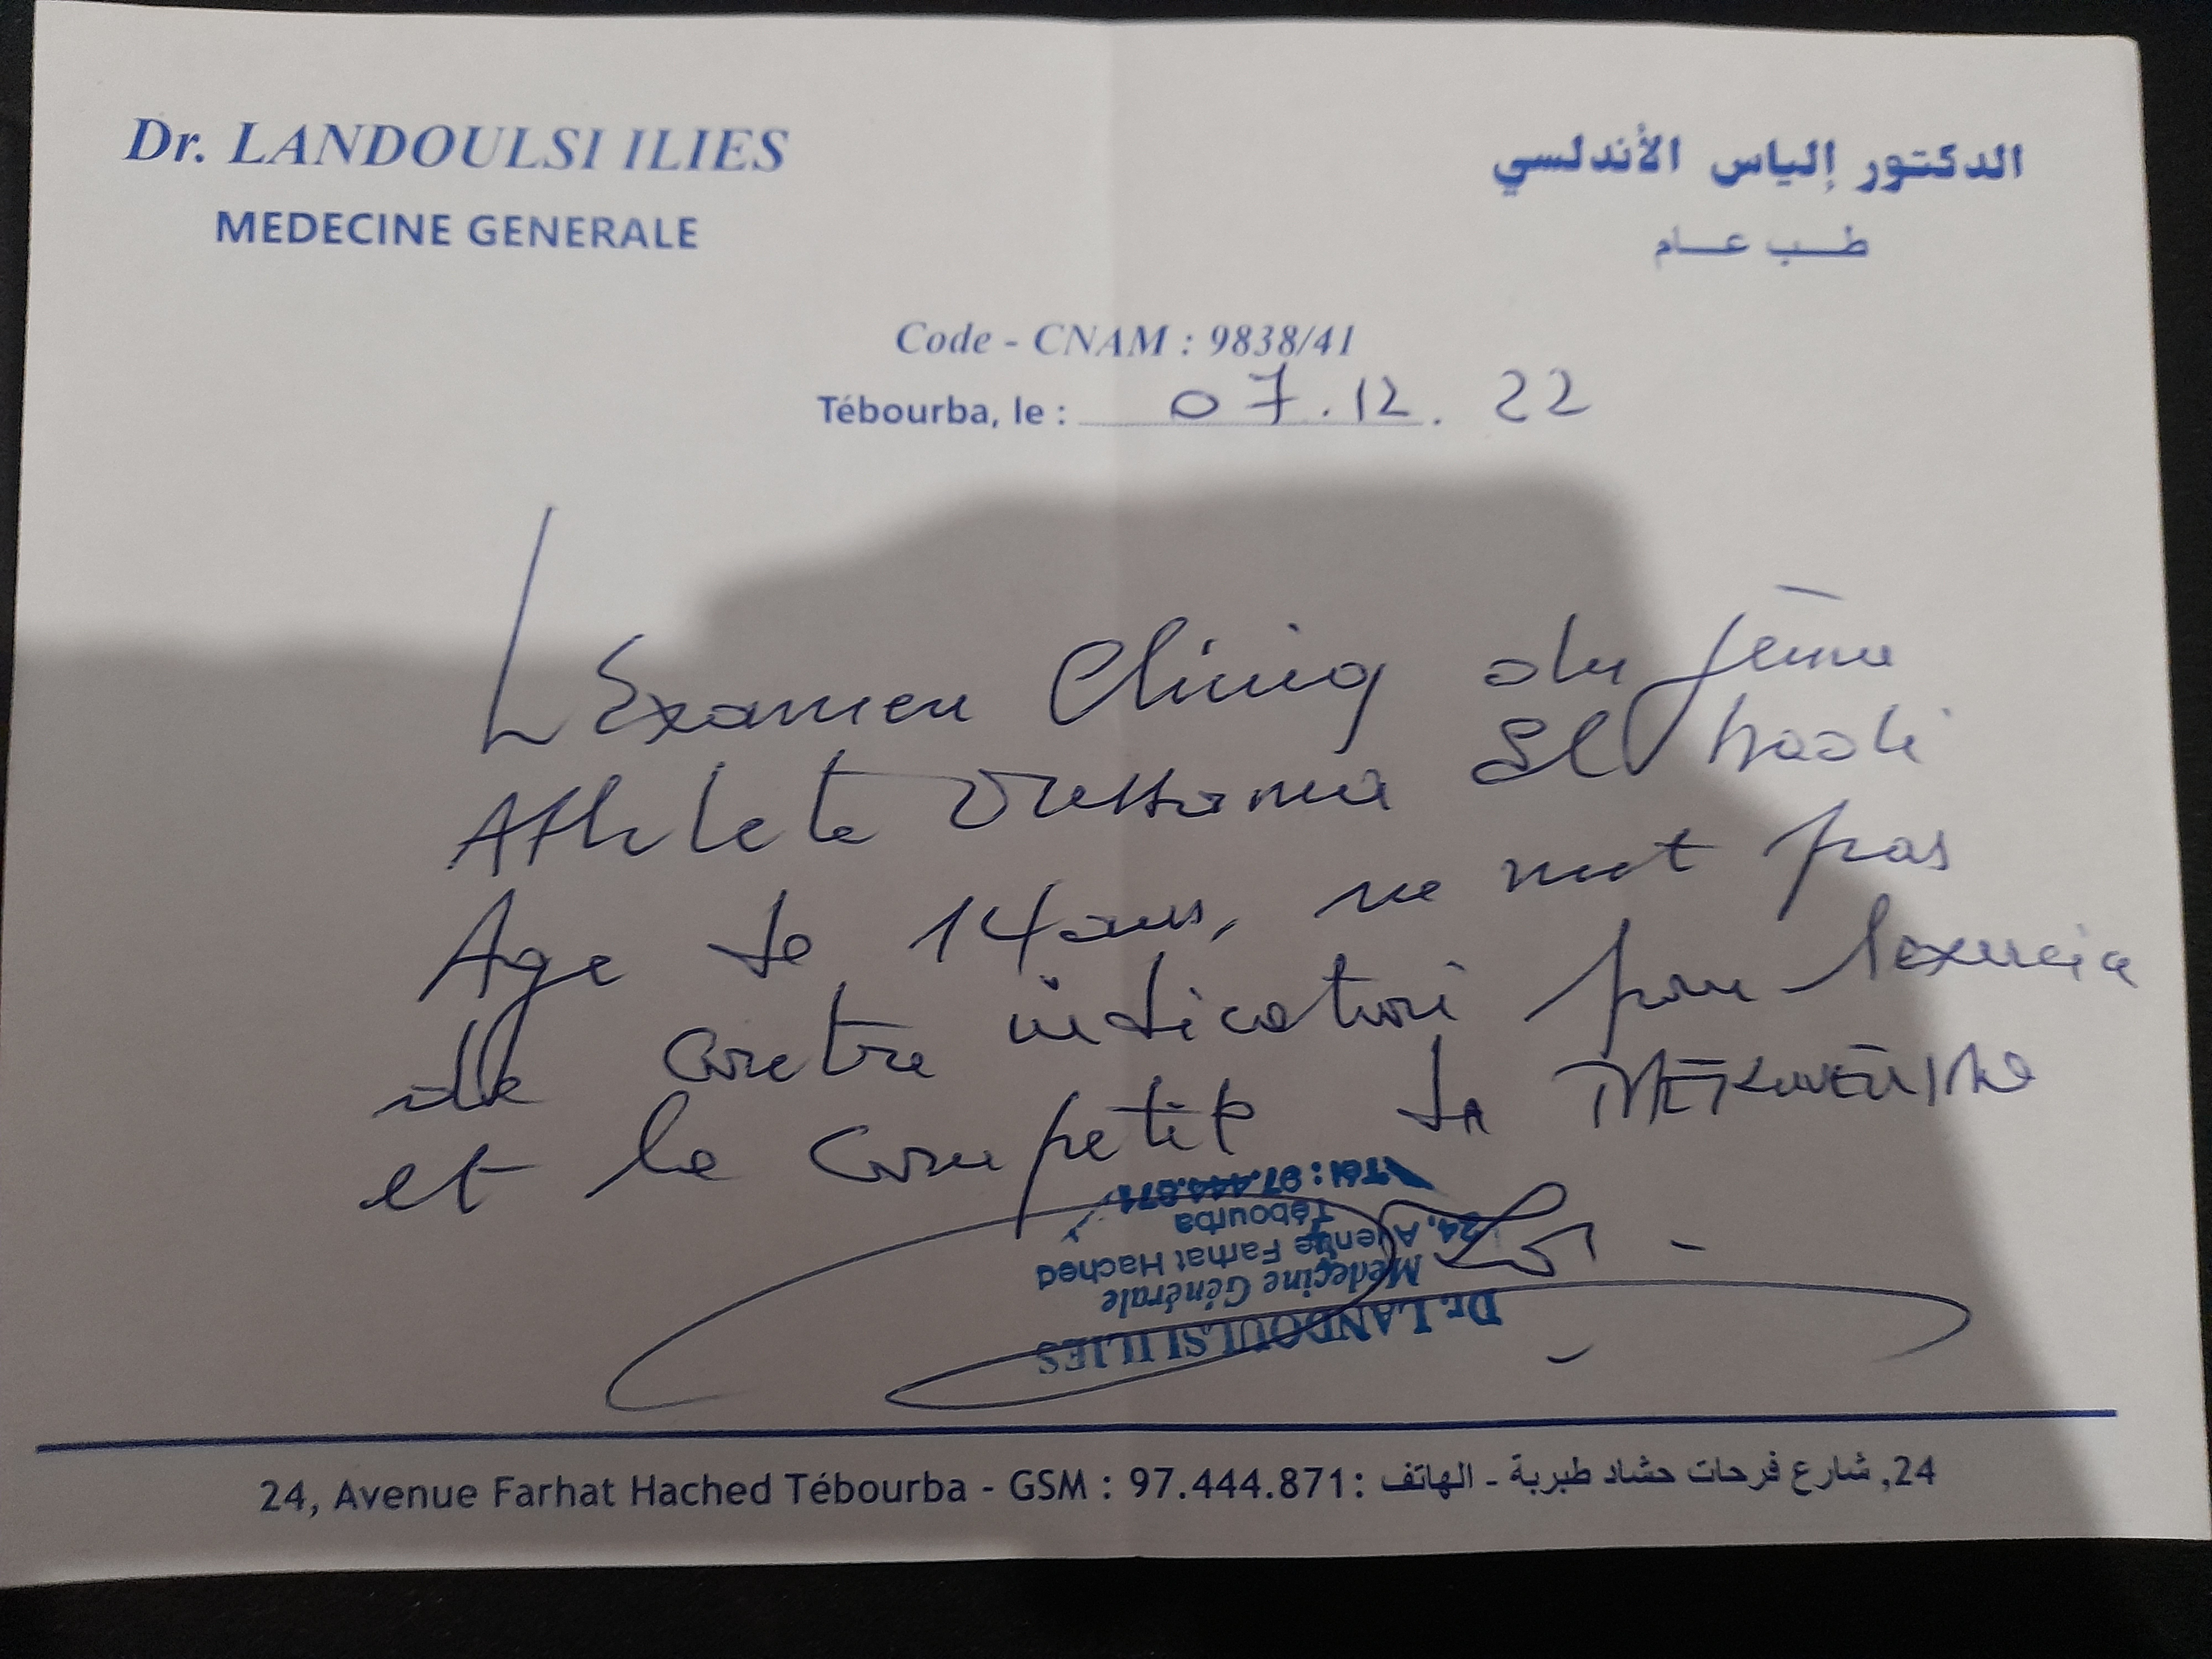 Dr. LANDOULSI ILIES
MEDECINE GENERALE
الدكتور إلياس الأندلسي
طب عام
Code - CNAM : 9838/41
Tébourba, le : 07.12.22
L'Examen Cliniq du jeune
Athlete El
Age de 14 ans, ne met pas
de contre indication pour l'exercice
et la competit
Tél : 97.444.871
Tébourba
24, Avenue Farhat Hached
Médecine Générale
Dr. LANDOULSI ILIES
24, Avenue Farhat Hached Tébourba - GSM : 97.444.871 : 24, شارع فرحات حشاد طبربة - الهاتف